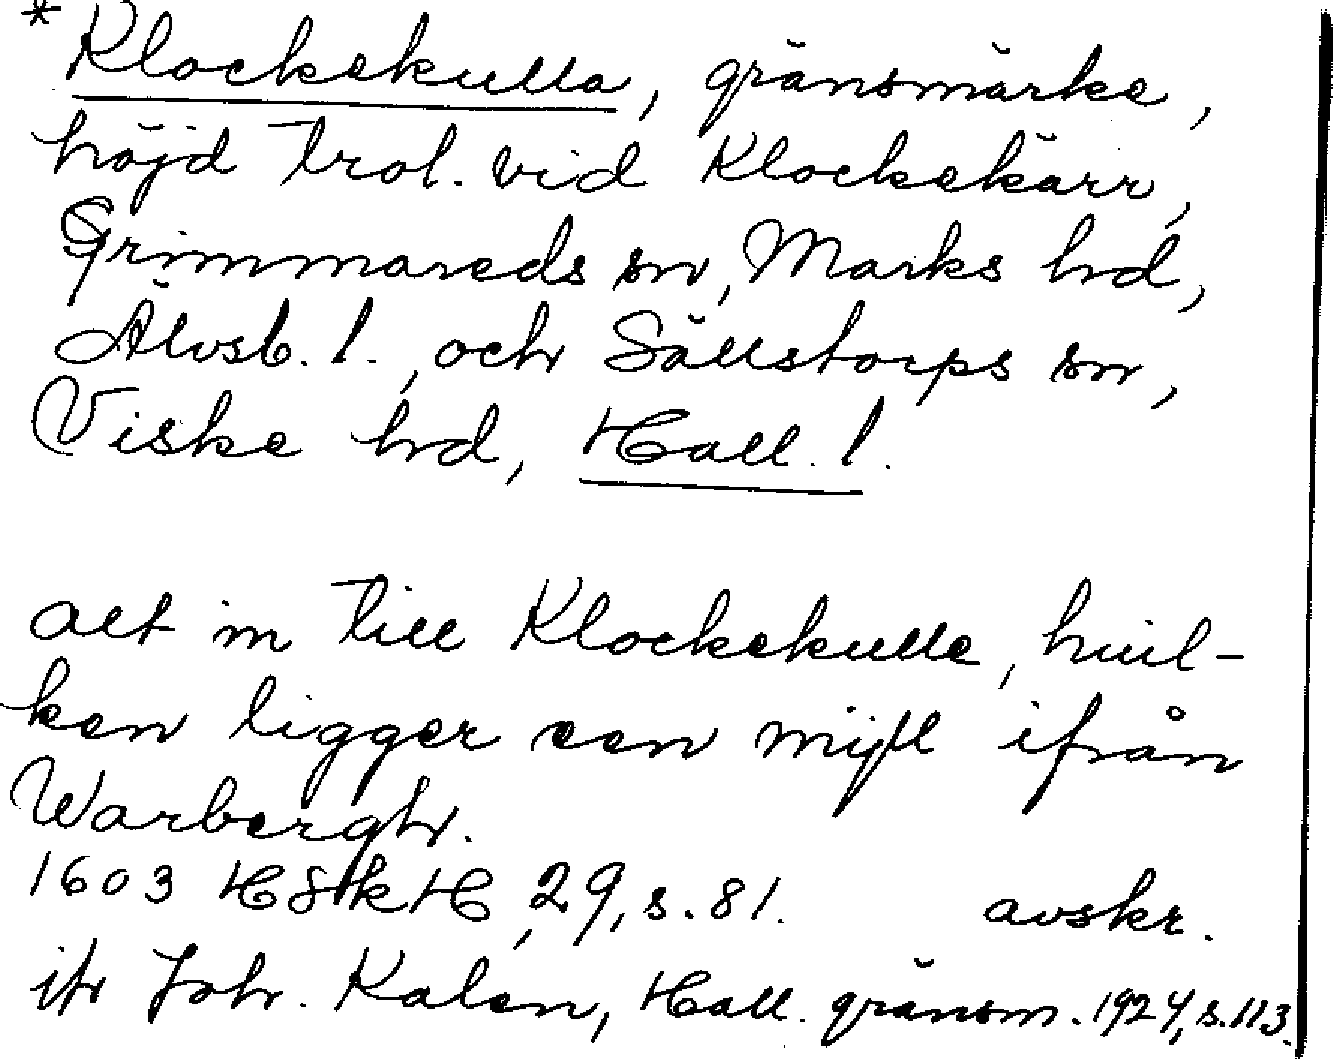 *Klockekulla, gränsmärke,
höjd trol. vid Klockekärr,
Grimmareds sn, Marks hd,
Älvsb. l., och Sällstorps sn,
Viske hd, Hall. l.
alt in till Klockekulle, huil-
ken ligger een mijl ifrån
Warbergh.
1603 HSkH, 29, s. 81. avskr.
Joh. Kalén, Hall. gränsm. 1924, s. 113.